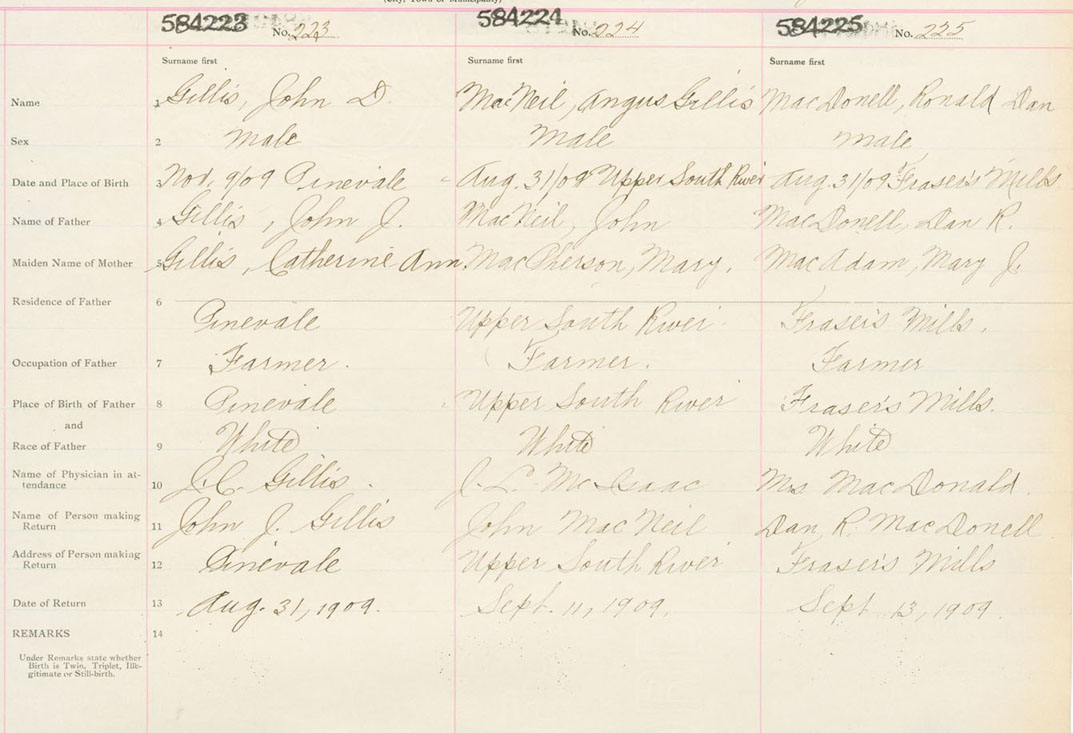 (City, Town or Municipality)
584223 No. 223 584224 No. 224 584225 No. 225
Surname first Surname first Surname first
Name 1 Gillis, John D. MacNeil, Angus Gillis MacDonell, Ronald Dan
Sex 2 Male Male Male
Date and Place of Birth 3 Nov. 9/09 Pinevale Aug. 31/09 Upper South River Aug. 31/09 Fraser's Mills
Name of Father 4 Gillis, John J. MacNeil, John MacDonell, Dan R.
Maiden Name of Mother 5 Gillis, Catherine Ann. MacPherson, Mary. MacAdam, Mary J.
Residence of Father 6 Pinevale Upper South River. Fraser's Mills.
Occupation of Father 7 Farmer. Farmer. Farmer
Place of Birth of Father 8 Pinevale Upper South River Fraser's Mills.
and
Race of Father 9 White White White
Name of Physician in at-
tendance 10 J.C. Gillis. J. L. McIsaac Mrs MacDonald.
Name of Person making
Return 11 John J. Gillis John MacNeil Dan R. MacDonell
Address of Person making
Return 12 Pinevale Upper South River Fraser's Mills
Date of Return 13 Aug. 31, 1909. Sept. 11, 1909. Sept 13, 1909
REMARKS 14
Under Remarks state whether
Birth is Twin, Triplet, Ille-
gitimate or Still-birth.